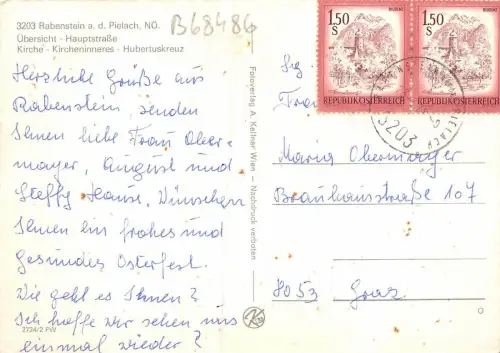 3203 Rabenstein a. d. Pielach, NÖ.
Übersicht - Hauptstraße
Kirche - Kircheninneres - Hubertuskreuz
B68486
Herzliche Grüße aus
Rabenstein, senden
Ihnen liebe Frau Ober-
mayer, August und
Steffy Hause, Wünschen
Ihnen ein frohes und
gesundes Osterfest.
Wie geht es Ihnen?
Ich hoffe wir sehen uns
einmal wieder?
2724/2 PW
Fotoverlag A. Kellner Wien - Nachdruck verboten
1.50
S
REPUBLIK ÖSTERREICH
1.50
S
REPUBLIK ÖSTERREICH
3203
Frau
Maria Obermayer
Brauhausstraße 107
8053 Graz